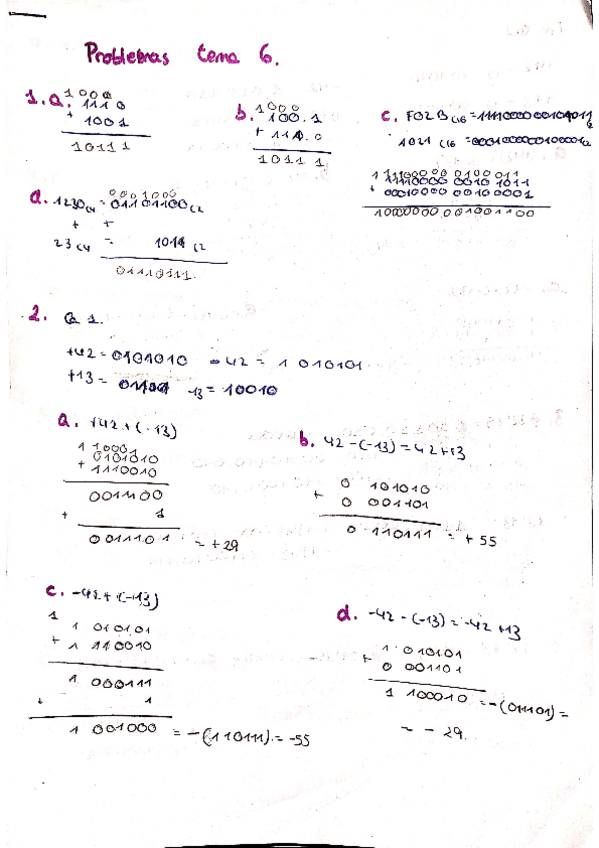 Problemas tema 6.
1.a.
1000
1110
+ 1001
10111
b.
1000
100.1
+ 111.0
1011 1
c. F02B
1021
11110000 0010 1011
+ 00010000 0010 0001
10000000001001100
d. 1230
0001000
01101100
+ +
23 = 1011
01110111
2.
+42 = 0101010 -42 = 1 010101
+13 = -13 = 10010
a. +42 + (-13)
0101010
+ 1110010
0011100
+ 1
0011101 = +29
b. 42 - (-13) = 42+13
0 101010
+ 0 001101
0 110111 = + 55
c. -42 + (-13)
1
1 010101
+ 1 110010
1 000111
+ 1
1 001000 = -(110111) = -55
d. -42 - (-13) = -42 +13
1 010101
+ 0 001101
1 100010 = -(011101) =
= - 29.